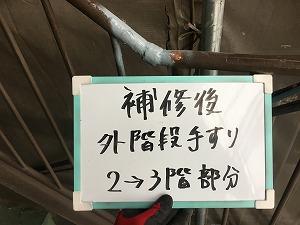 補修後
外階段手すり
2→3階部分